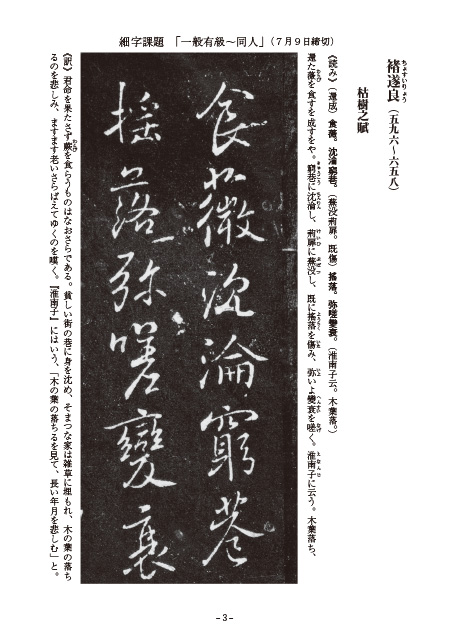 細字課題 「一般有級～同人」（７月９日締切）
褚遂良（五九六～六五八）
ちょすいりょう
枯樹之賦
《読み》（還成）食薇。沈淪窮巷。（蕪没荊扉。既傷）搖落。弥嗟變衰。（淮南子云。木葉落。）
還た薇を食すを成すをや。窮巷に沈淪し、荊扉に蕪没し、既に搖落を傷み、弥いよ變衰を嗟く。淮南子に云う。木葉落ち、
食薇沈淪窮巷
搖落弥嗟變衰
《訳》君命を果たさず蕨を食らうものはなおさらである。貧しい街の巷に身を沈め、そまつな家は雑草に埋もれ、木の葉の落ち
るのを悲しみ、ますます老いさらばえてゆくのを嘆く。『淮南子』にはいう、「木の葉の落ちるを見て、長い年月を悲しむ」と。
-3-